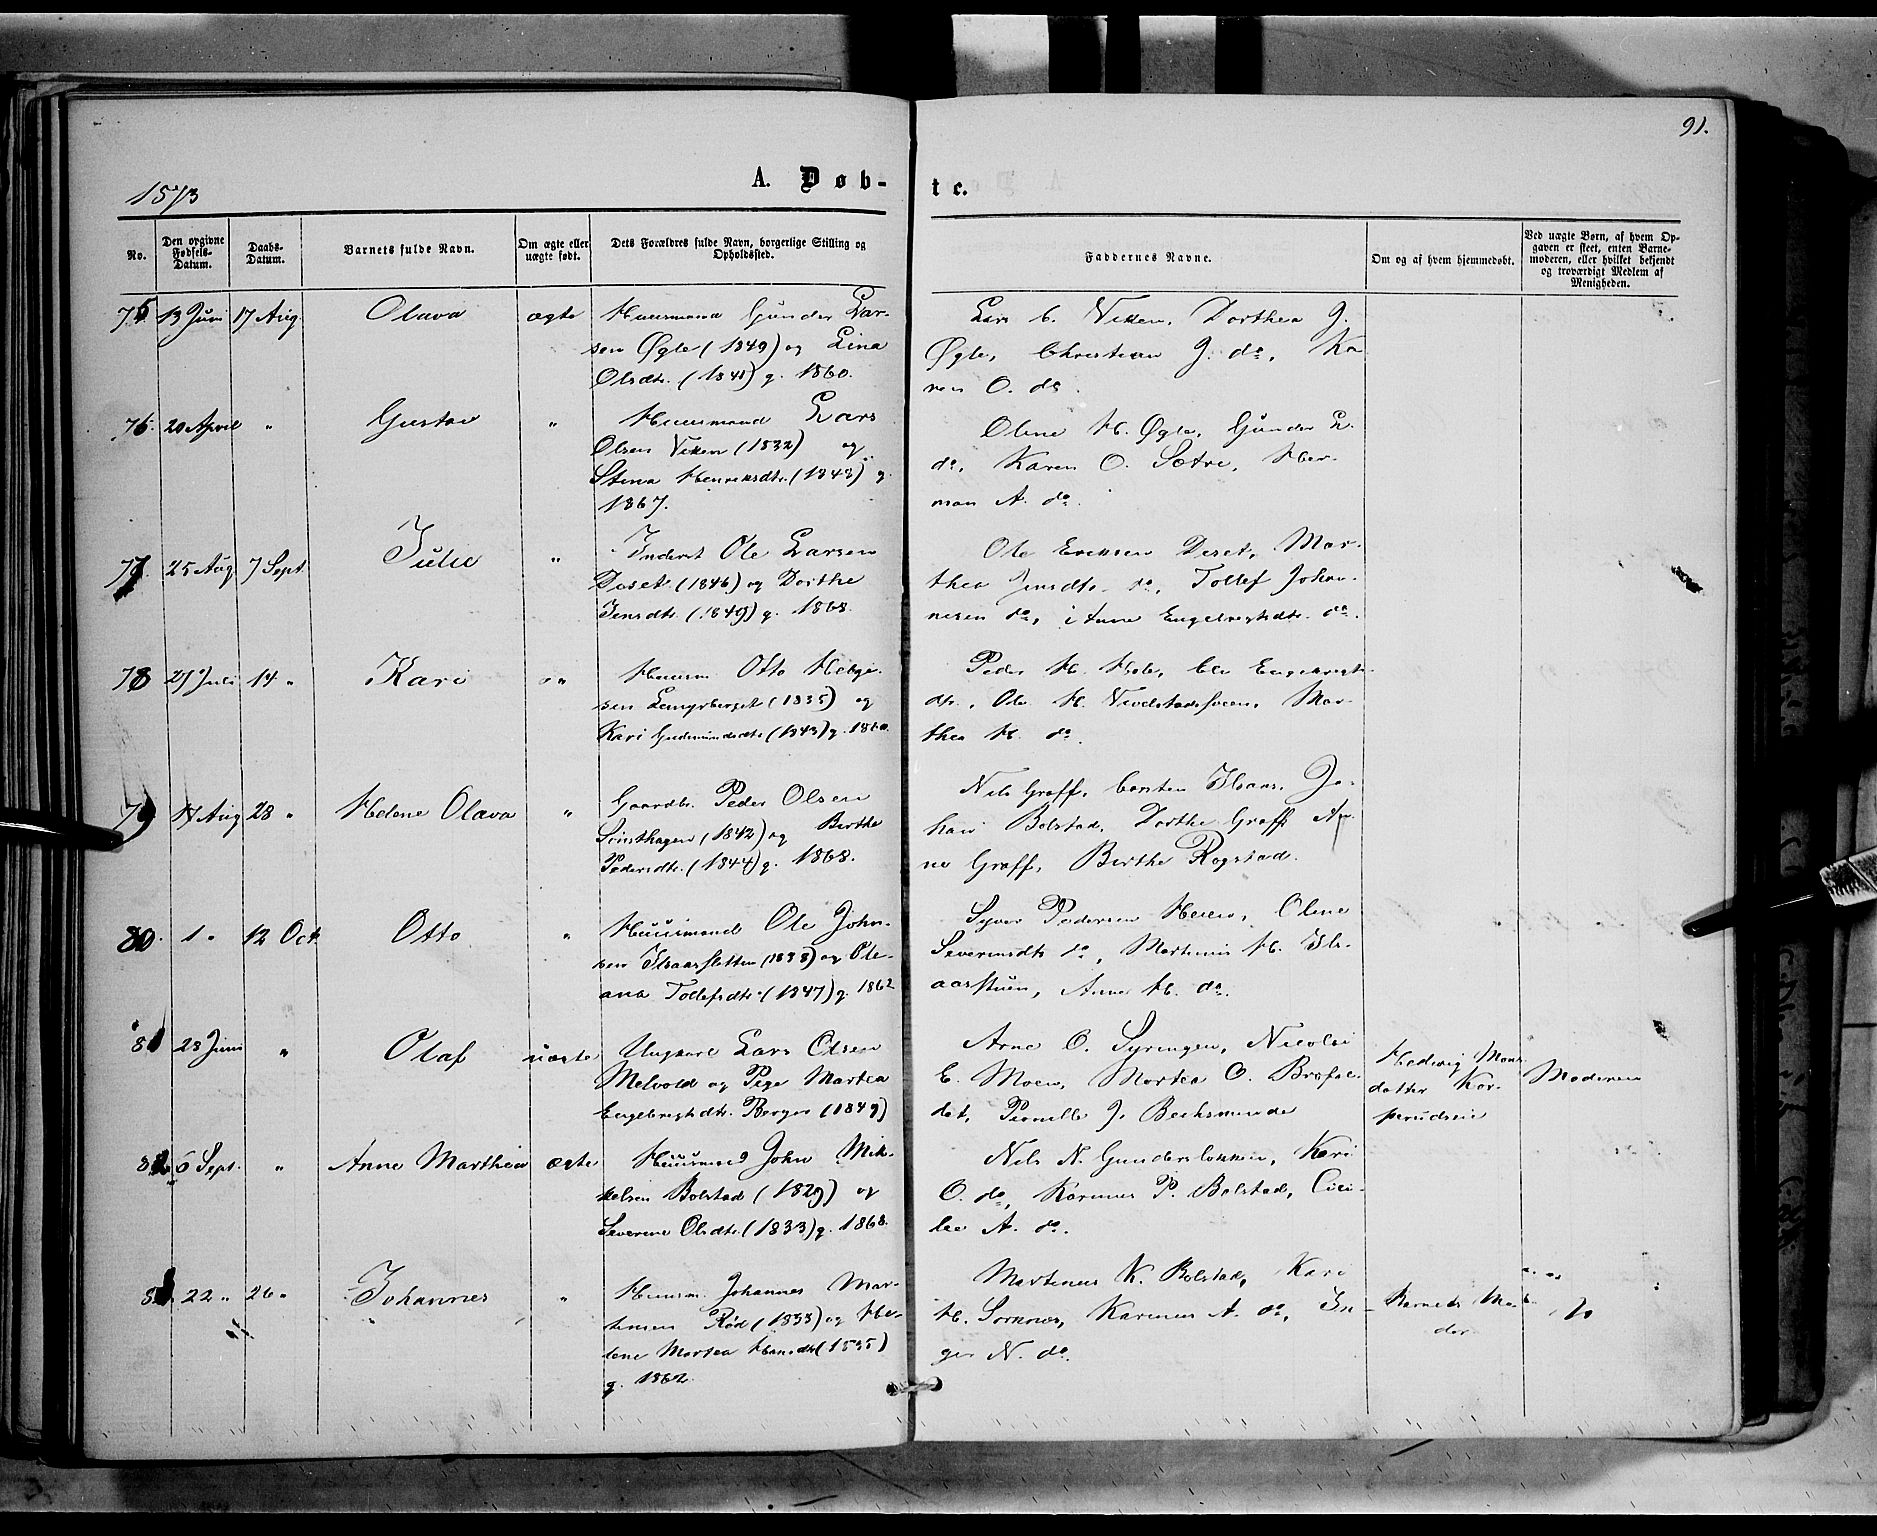 91.
1873
A. Døb-
te.
No.
Den opgivne Fødsels-Datum.
Daabs-Datum.
Barnets fulde Navn.
Om ægte eller uægte født.
Dets Forældres fulde Navn, borgerlige Stilling og Opholdssted.
Faddernes Navne.
Om og af hvem hjemmedøbt.
Ved uægte Børn, af hvem Op-
gaven er skeet, enten Barne-
moderen, eller hvilket bekjendt
og troværdigt Medlem af
Menigheden.
75 13 Juni 17 Aug. Olava ægte Huusmand Gunder Lar-
sen Øgle (1840) og Lina
Olsdtr. (1841) g. 1860.
Lars C. Viken, Dorthea J.
Øgle, Christian J. do, Ka
ren O. do
76. 20 April " Gustav " Huusmand Lars
Olsen Viken (1832) og
Stina Henriksdtr. (1848) g.
1867.
Oline H. Øgle, Gunder L.
do, Karen O. Sætre, Her-
man A. do.
77. 25 Aug 7 Sept. Julie " Inderst Ole Larsen
Deset (1846) og Dorthe
Jensdtr. (1849) g. 1868.
Ole Eriksen Deset, Mar-
thea Jensdtr. do, Tollef Johan-
nesen do, Anne Engebregtsdtr. do.
78 27 Juli 14 " Kari " Huusm. Otto Helge-
sen (1835) og
Kari Gudmundsdtr. (1843) g. 1860.
Peder H. Engebregts-
dtr., Ole H. Mar-
thea H. do.
79 14 Aug 28 " Helene Olava " Gaardbr. Peder Olsen
Sønsthagen (1842) og Berthe
Pedersdtr. (1844) g. 1868.
Nils Graff, Carsten Ilsaas, Jo-
han Bolstad, Dorthe Graff An-
ne Graff, Berthe Rogstad.
80. 1 " 12 Oct. Otto " Huusmand Ole John-
sen Ilsaassletten (1838) og Ole-
ana Tollefsdtr. (1847) g. 1862
Syver Pedersen Oline
Severinsdtr. do, Martinus H. Ils-
aasstuen, Anne H. do.
81 28 Juni " Olaf uægte Ungkarl Lars Olsen
Melvold og Pige Martea
Engebregtsdtr. Berger (1849)
Arne O. Syringen, Nicolai
E. Moen, Martea O. Brofal-
det, Pernille J.
Hedevig Mons
datter
Moderen
82 6 Sept. " Anne Marthea ægte Huusmand John Mik-
kelsen Bolstad (1829) og
Severine Olsdtr. (1833) g. 1868.
Nils N. Gunderslokken, Kari
O. do, Karinus P. Bolstad, Ceci-
lie A. do.
83 22 " 26 " Johannes " Huusm. Johannes Mar-
tinsen Rød (1833) og He-
lene Martea Hansdtr. (1835)
g. 1862.
Martinus K. Bolstad, Kari
H. Sornæs, Karinus A. do, In
ger N. do.
Barnets Mo-
der